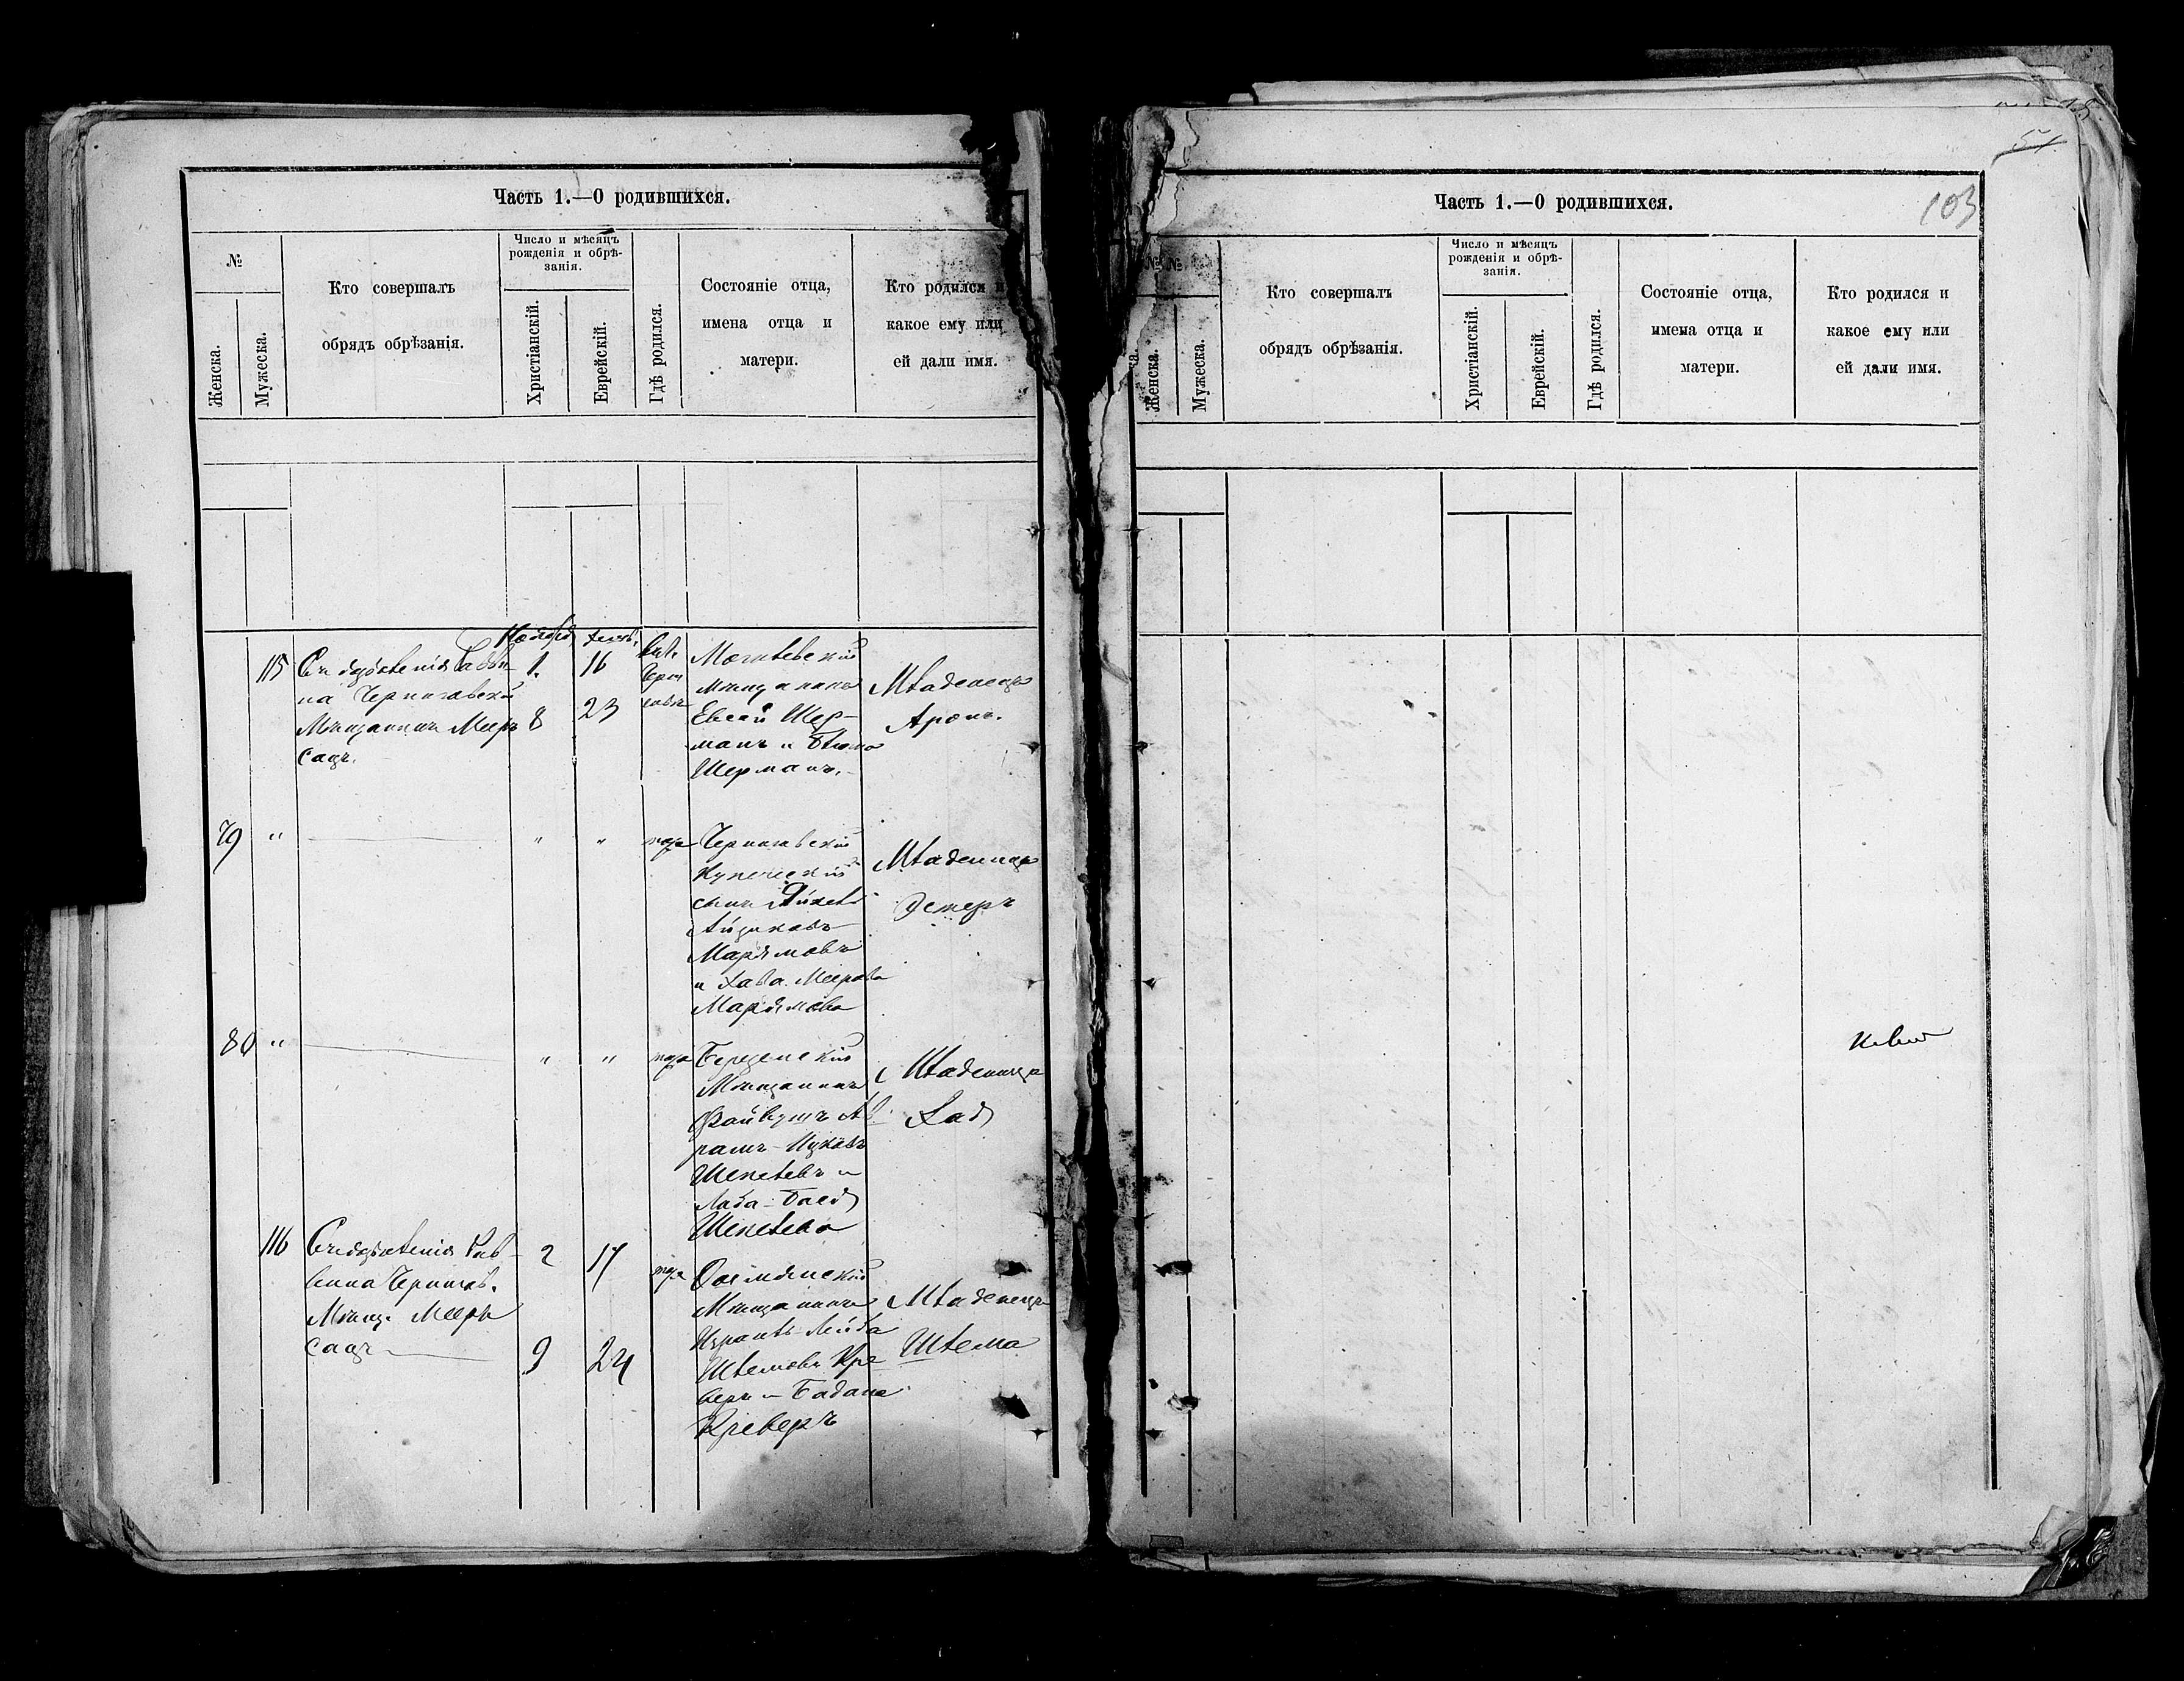 Часть 1.—О родившихся.
№
Женска.
Мужеска.
Кто совершалъ
обрядъ обрѣзанія.
Число и мѣсяцъ
рожденія и обрѣ-
занія.
Христіанскій.
Еврейскій.
Гдѣ родился.
Состояніе отца,
имена отца и
матери.
Кто родился и
какое ему или
ей дали имя.
115
Черниговскій
Мѣщанинъ Мееръ
Сацъ.
1.
8
16
23
Могилевскій
мѣщанинъ
Евсей Шер-
манъ и
Шерманъ.
Младенецъ
Аронъ.
79 "
" "
тоже
Черниговскій
Купеческій
сынъ
Айзиковъ
Марьямовъ
и Хава Меерова
Марьямова
Младеница
Эстеръ
80 "
" "
тоже
Мѣщанинъ
Файвушъ Аб-
рамъ-Ицковъ
Шепелевъ и
Шепелева
Младеница
Хая
116
Съ дозволенія Рав-
вина Чернигов.
Мѣщ. Мееръ
Сацъ
2
9
17
24
тоже
Ошмянскій
Мѣщанинъ
Израиль-Лейба
Шлемовъ Кре-
веръ и Бадана
Креверъ
Младенецъ
Шлема
Часть 1.—О родившихся.
54
103
№ №
Женска.
Мужеска.
Кто совершалъ
обрядъ обрѣзанія.
Число и мѣсяцъ
рожденія и обрѣ-
занія.
Христіанскій.
Еврейскій.
Гдѣ родился.
Состояніе отца,
имена отца и
матери.
Кто родился и
какое ему или
ей дали имя.